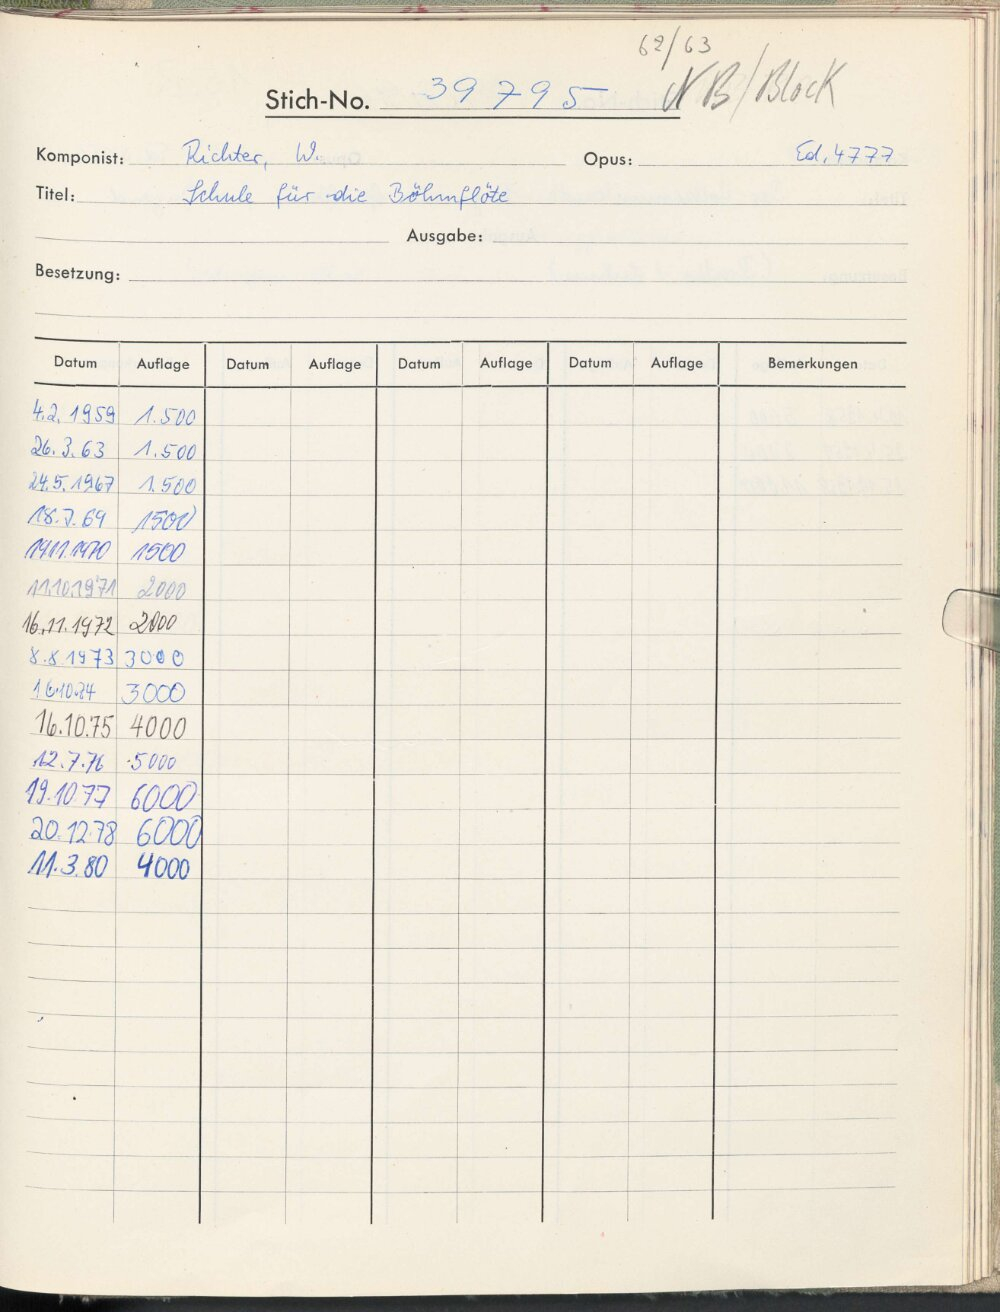 62/63
Stich-No. 39795 NB/Block
Komponist: Richter, W. Opus: Ed. 4777
Titel: Schule für die Böhmflöte
Ausgabe:
Besetzung:
Datum Auflage Datum Auflage Datum Auflage Datum Auflage Bemerkungen
4.2.1959 1.500
26.3.63 1.500
24.5.1967 1.500
18.7.69 1500
1500
11.10.1971 2000
16.11.1972 2000
8.8.1973 3000
3000
16.10.75 4000
12.7.76 5000
19.10.77 6000
20.12.78 6000
11.3.80 4000